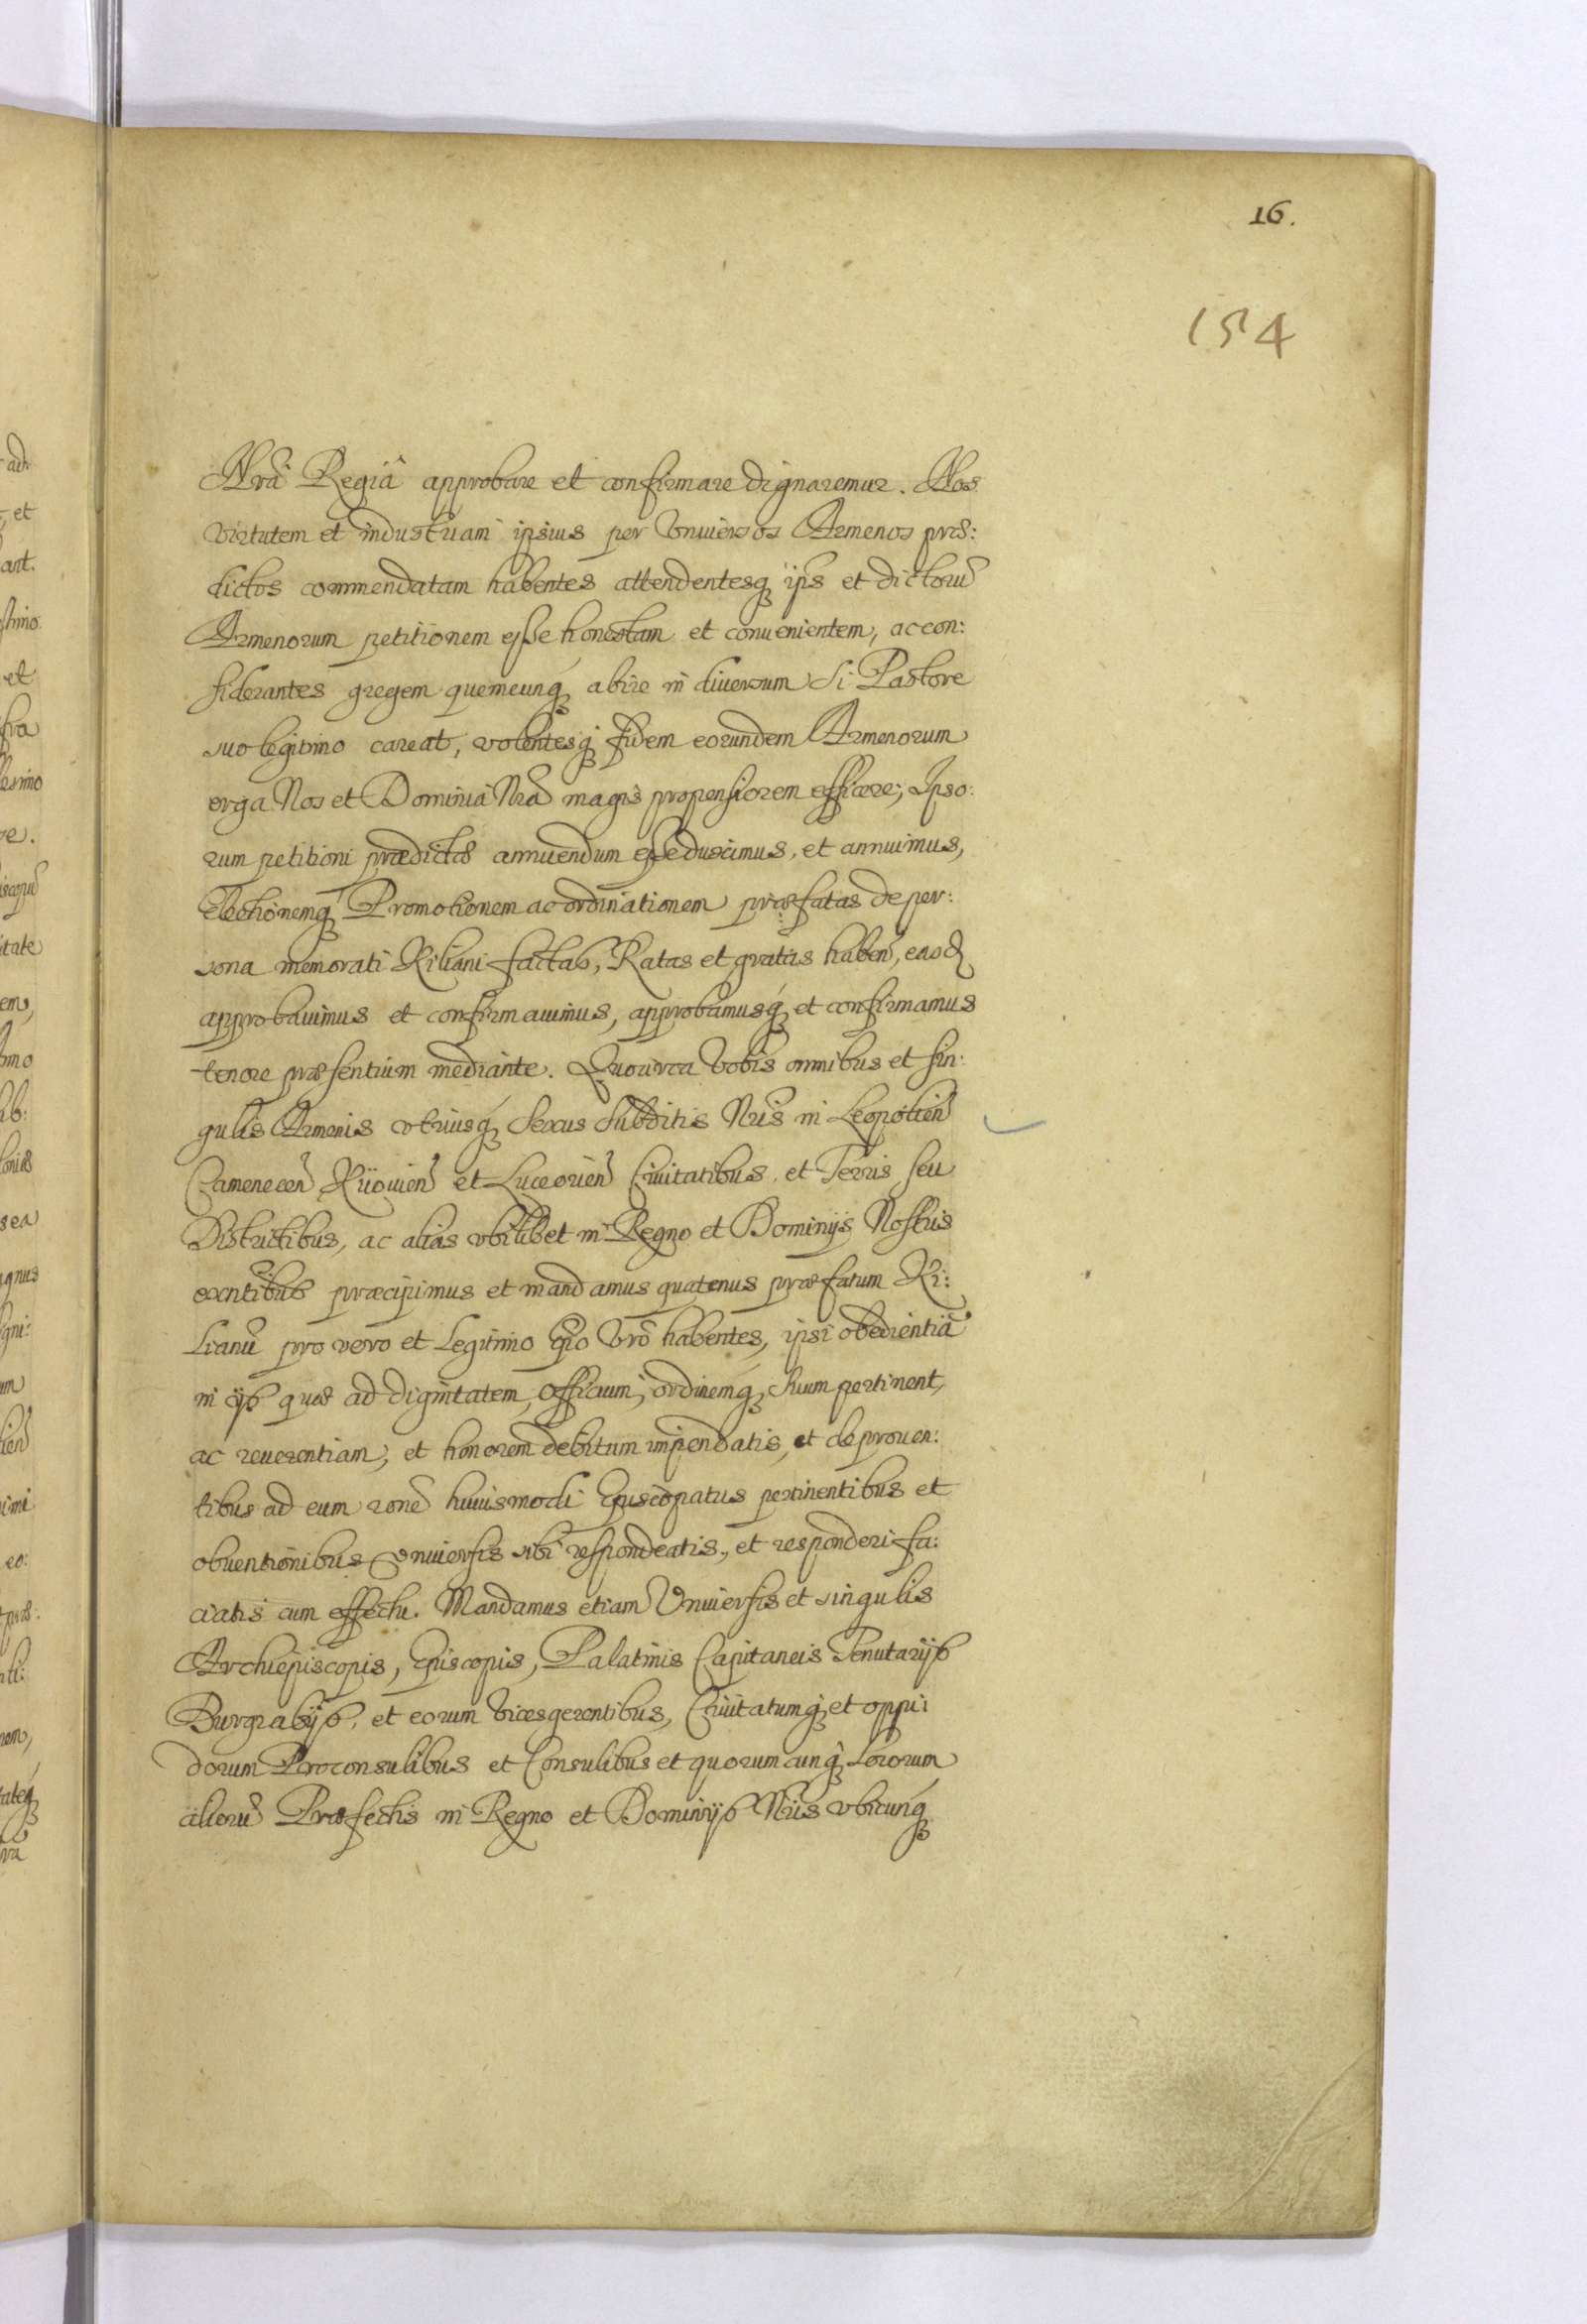 16.
154
Nrâ Regiâ approbare et confirmare dignaremur. Nos
virtutem et industriam ipsius per Vniuersos Armenos præ:
dictos commendatam habentes attendentesq́ꝫ ips et dictorũ
Armenorum petitionem esse honestam et conuenientem, ac con:
siderantes gregem quemcunq́ꝫ abire in diuersum si Pastore
suo legitimo careat, volentesq́ꝫ fidem eorundem Armenorum
erga Nos et Dominia Nrã magis propensiorem efficere; Ipso:
rum petitioni prædictæ annuendum esse duximus, et annuimus,
Electionemq́ꝫ Promotionem ac ordinationem præfatas de per:
sona memorati Kiliani factas, Ratas et gratas haben̄, easq́ꝫ
approbauimus et confirmauimus, approbamusq́ꝫ et confirmamus
tenore præsentium mediante. Quocirca Vobis omnibus et sin:
gulis Armenis vtriusq́ꝫ Sexus Subditis Nrĩs in Leopolien̄
Camenecen̄ Kÿouien̄ et Luceorien̄ Ciuitatibus, et Terris seu
Districtibus, ac alias vbilibet in Regno et Dominijs Nostris
exn̄tibus præcipimus et mandamus quatenus præfatum Ki:
lianũ pro vero et Legitimo Epõ Vrõ habentes, ipsi obedientiã
in ijs quæ ad dignitatem, Officium, ordinemq́ꝫ suum pertinent,
ac reuerentiam, et honorem debitum impendatis, et de prouen:
tibus ad eum rone̅ huiusmodi Episcopatus pertinentibus et
obuentionibus Vniuersis sibi respondeatis, et responderi fa:
ciatis cum effectu. Mandamus etiam Vniuersis et singulis
Archiepiscopis, Episcopis, Palatinis Capitaneis Tenutarijs
Burgrabijs, et eorum Vicesgerentibus, Ciuitatumq́ꝫ et oppi:
dorum Proconsulibus et Consulibus et quorumcunq́ꝫ Locorum
aliorũ Præfectis in Regno et Dominijs Nrĩs vbicunq́ꝫ